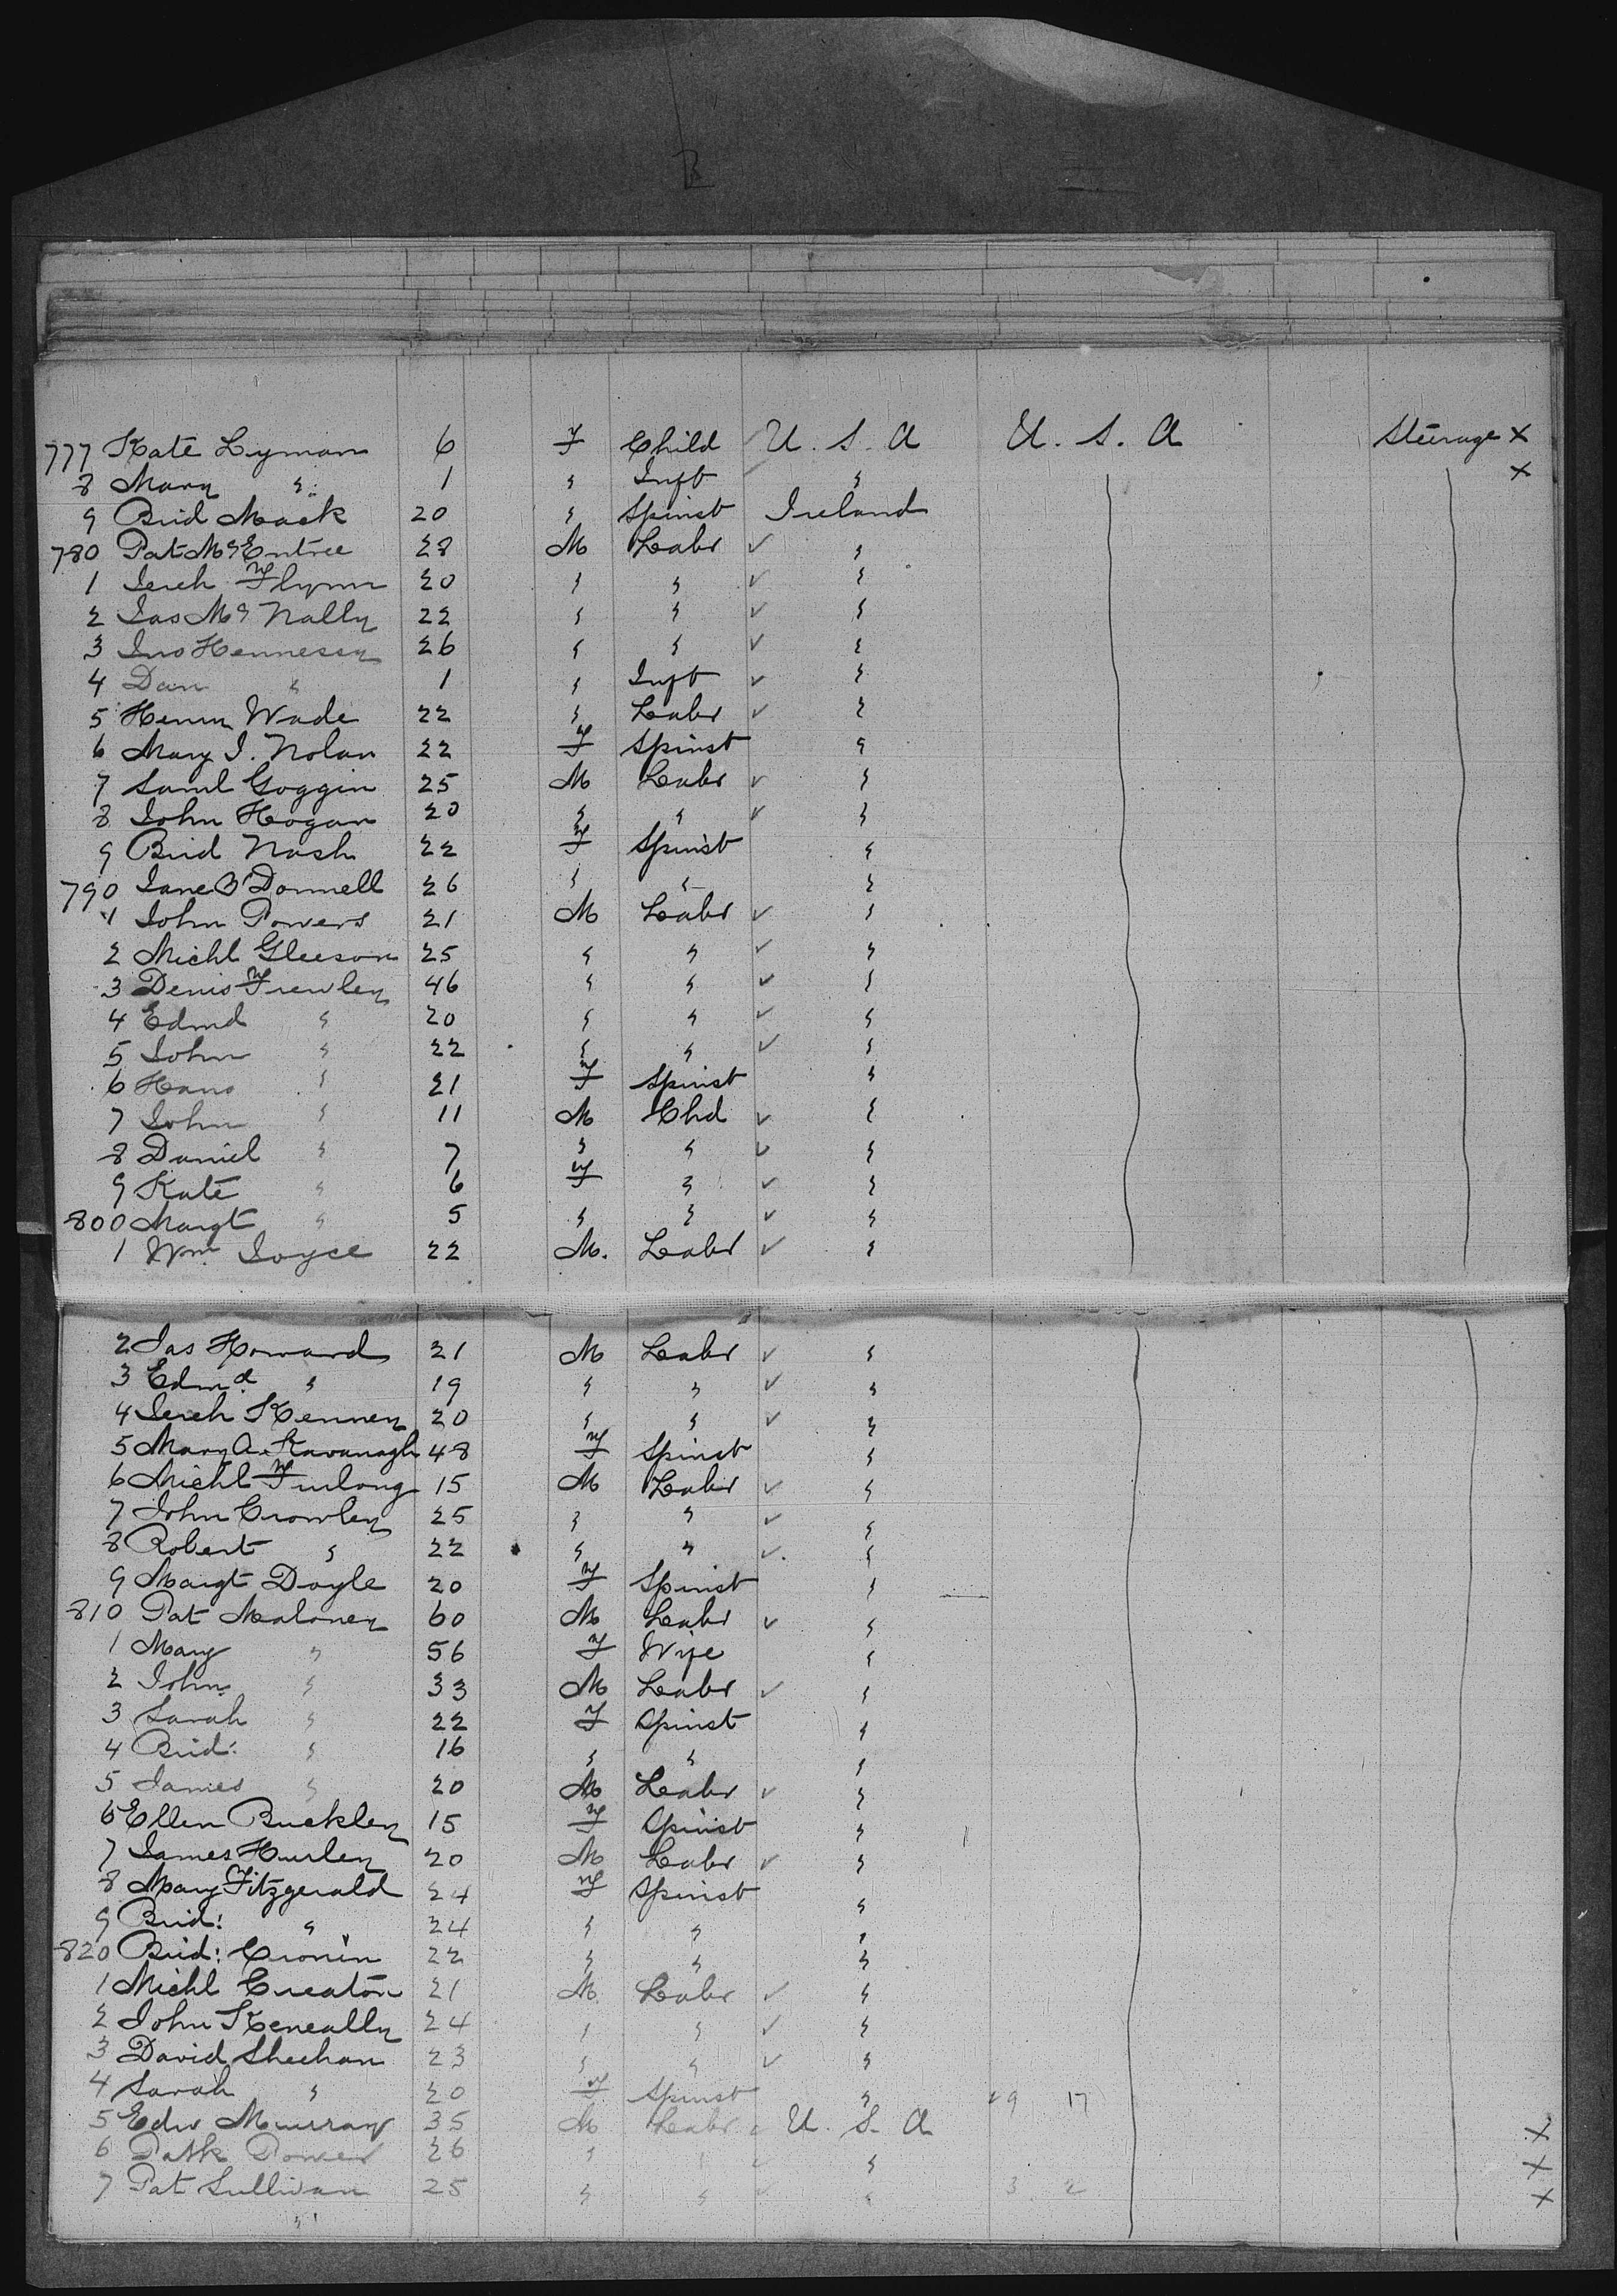 B
777 Kate Lyman 6 F Child U. S. A U. S. A Steerage X
8 Mary " 1 " Inft " X
9 Brid Mack 20 " Spinst Ireland
780 Pat McEntree 28 M Labr ✓ "
1 Jereh Flynn 20 " " ✓ "
2 Jas McNally 22 " " ✓ "
3 Jno Hennessy 26 " " ✓ "
4 Dan " 1 " Inft ✓ "
5 Henry Wade 22 " Labr ✓ "
6 Mary J. Nolan 22 F Spinst "
7 Saml Goggin 25 M Labr ✓ "
8 John Hogan 20 " " ✓ "
9 Brid Nash 22 F Spinst "
790 Jane O'Donnell 26 " " "
1 John Powers 21 M Labr ✓ "
2 Michl Gleeson 25 " " ✓ "
3 Denis Frewley 46 " " ✓ "
4 Edmd " 20 " " ✓ "
5 John " 22 " " ✓ "
6 Hano " 21 F Spinst "
7 John " 11 M Chd ✓ "
8 Daniel " 7 " " ✓ "
9 Kate " 6 F " ✓ "
800 Margt " 5 " " ✓ "
1 Wm Joyce 22 M. Labr ✓ "
2 Jas Howard 21 M Labr ✓ "
3 Edmd " 19 " " ✓ "
4 Jereh Kenney 20 " " ✓ "
5 Mary A. Kavanagh 48 F Spinst "
6 Michl Furlong 15 M Labr ✓ "
7 John Crowley 25 " " ✓ "
8 Robert " 22 " " ✓ "
9 Margt Doyle 20 F Spinst "
810 Pat Maloney 60 M Labr ✓ "
1 Mary " 56 F Wife "
2 John " 33 M Labr ✓ "
3 Sarah " 22 F Spinst "
4 Brid: " 16 " " "
5 James " 20 M Labr ✓ "
6 Ellen Buckley 15 F Spinst "
7 James Hurley 20 M Labr ✓ "
8 Mary Fitzgerald 24 F Spinst "
9 Brid: " 24 " " "
820 Brid: Cronin 22 " " "
1 Michl Creaton 21 M. Labr ✓ "
2 John Keneally 24 " " ✓ "
3 David Sheehan 23 " " ✓ "
4 Sarah " 20 F Spinst " 29 17
5 Edw Murray 35 M Labr U. S. A X
6 Patk Power 26 " " ✓ " X
7 Pat Sullivan 25 " " ✓ " 3 2 X